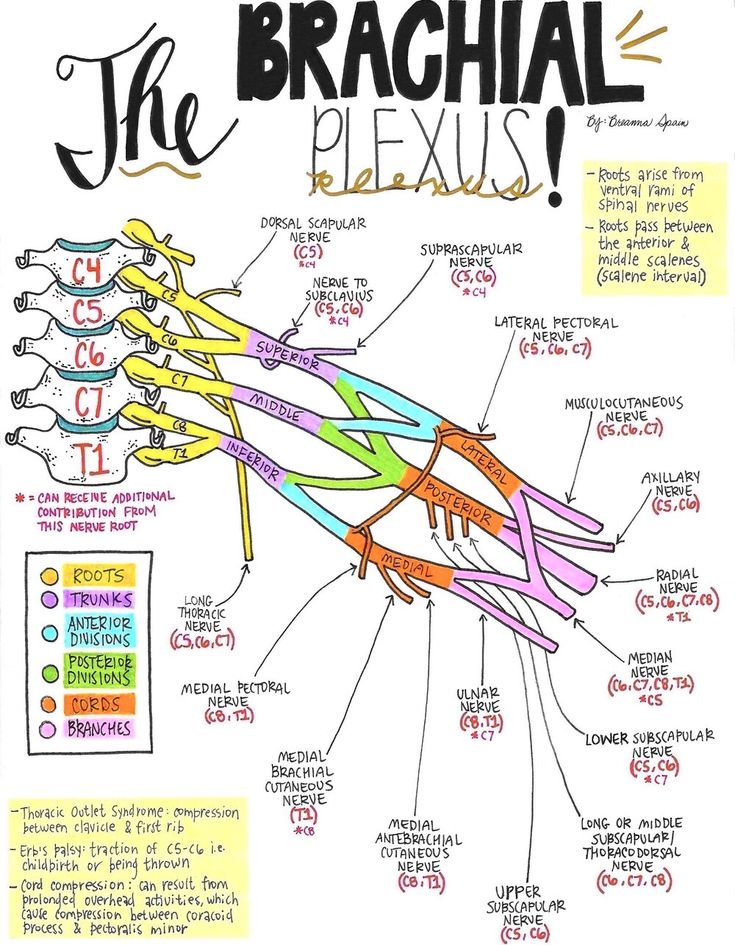 The BRACHIAL
PLEXUS!
plexus
By: Breanna Spain
- Roots arise from
ventral rami of
spinal nerves
- Roots pass between
the anterior &
middle scalenes
(scalene interval)
DORSAL SCAPULAR
NERVE
(C5)
*C4
NERVE TO
SUBCLAVIUS
(C5, C6)
*C4
SUPRASCAPULAR
NERVE
(C5, C6)
*C4
LATERAL PECTORAL
NERVE
(C5, C6, C7)
MUSCULOCUTANEOUS
NERVE
(C5, C6, C7)
AXILLARY
NERVE
(C5, C6)
RADIAL
NERVE
(C5, C6, C7, C8)
*T1
MEDIAN
NERVE
(C6, C7, C8, T1)
*C5
LOWER SUBSCAPULAR
NERVE
(C5, C6)
*C7
LONG OR MIDDLE
SUBSCAPULAR/
THORACODORSAL
NERVE
(C6, C7, C8)
UPPER
SUBSCAPULAR
NERVE
(C5, C6)
ULNAR
NERVE
(C8, T1)
*C7
MEDIAL
ANTEBRACHIAL
CUTANEOUS
NERVE
(C8, T1)
MEDIAL
BRACHIAL
CUTANEOUS
NERVE
(T1)
*C8
MEDIAL PECTORAL
NERVE
(C8, T1)
LONG
THORACIC
NERVE
(C5, C6, C7)
C4
C5
C6
C7
T1
C5
C6
C7
C8
T1
SUPERIOR
MIDDLE
INFERIOR
LATERAL
POSTERIOR
MEDIAL
* = CAN RECEIVE ADDITIONAL
CONTRIBUTION FROM
THIS NERVE ROOT
ROOTS
TRUNKS
ANTERIOR
DIVISIONS
POSTERIOR
DIVISIONS
CORDS
BRANCHES
- Thoracic Outlet Syndrome: compression
between clavicle & first rib
- Erb's palsy: traction of C5-C6 i.e.
childbirth or being thrown
- Cord compression: can result from
prolonged overhead activities, which
cause compression between coracoid
process & pectoralis minor